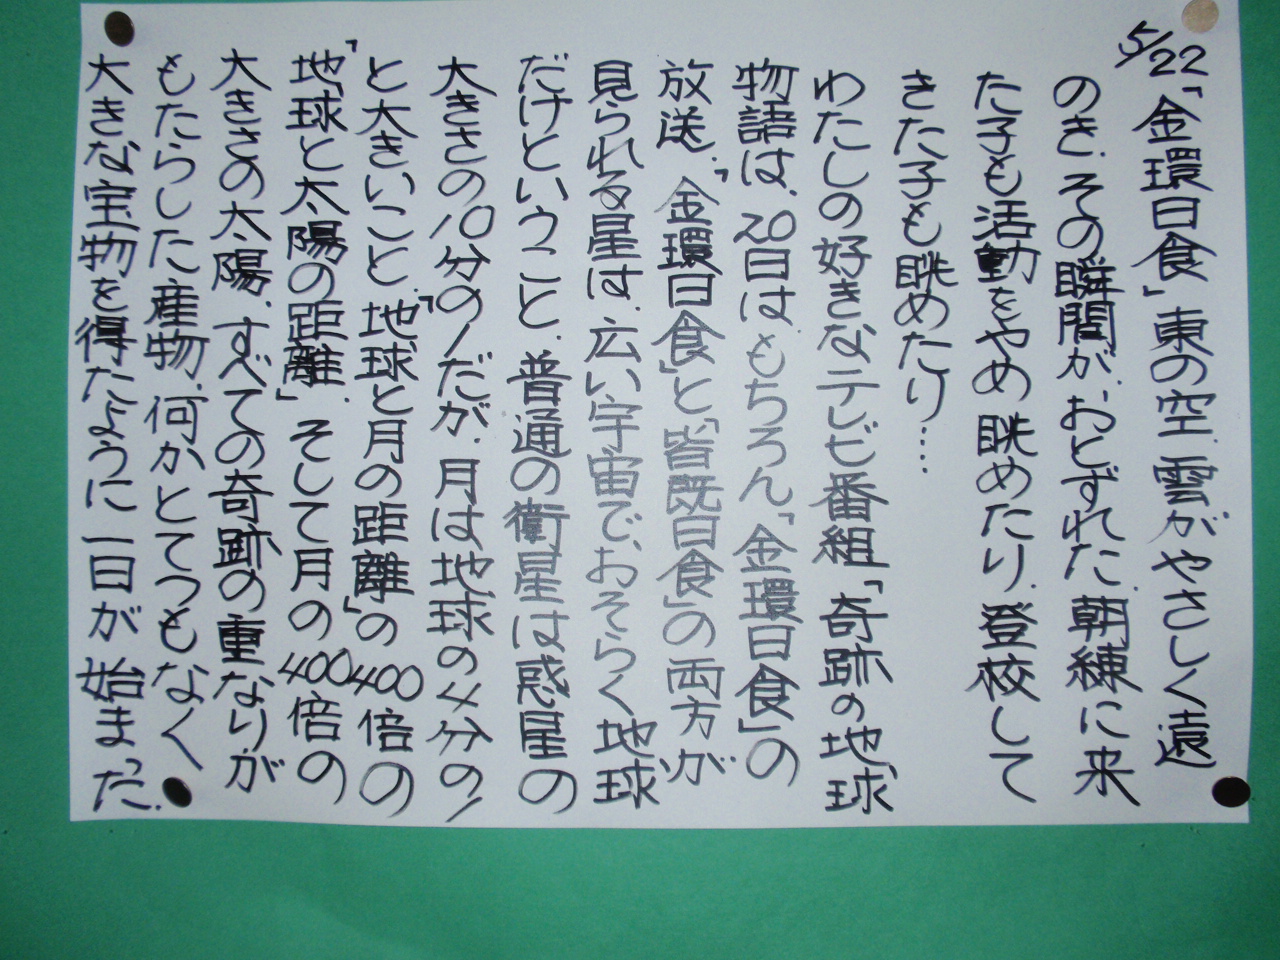 5/22「金環日食」東の空、雲がやさしく遠
のき、その瞬間が、おとずれた。朝練に来
た子も活動をやめ眺めたり、登校して
きた子も眺めたり……
わたしの好きなテレビ番組「奇跡の地球
物語は、20日はもちろん「金環日食」の
放送。「金環日食」と「皆既日食」の両方が
見られる星は、広い宇宙で、おそらく地球
だけということ、普通の衛星は惑星の
大きさの10分の1だが、月は地球の4分の1
と大きいこと、「地球と月の距離」の400倍の
「地球と太陽の距離」、そして月の400倍の
大きさの太陽、すべての奇跡の重なりが
もたらした産物、何かとてつもなく
大きな宝物を得たように一日が始まった。